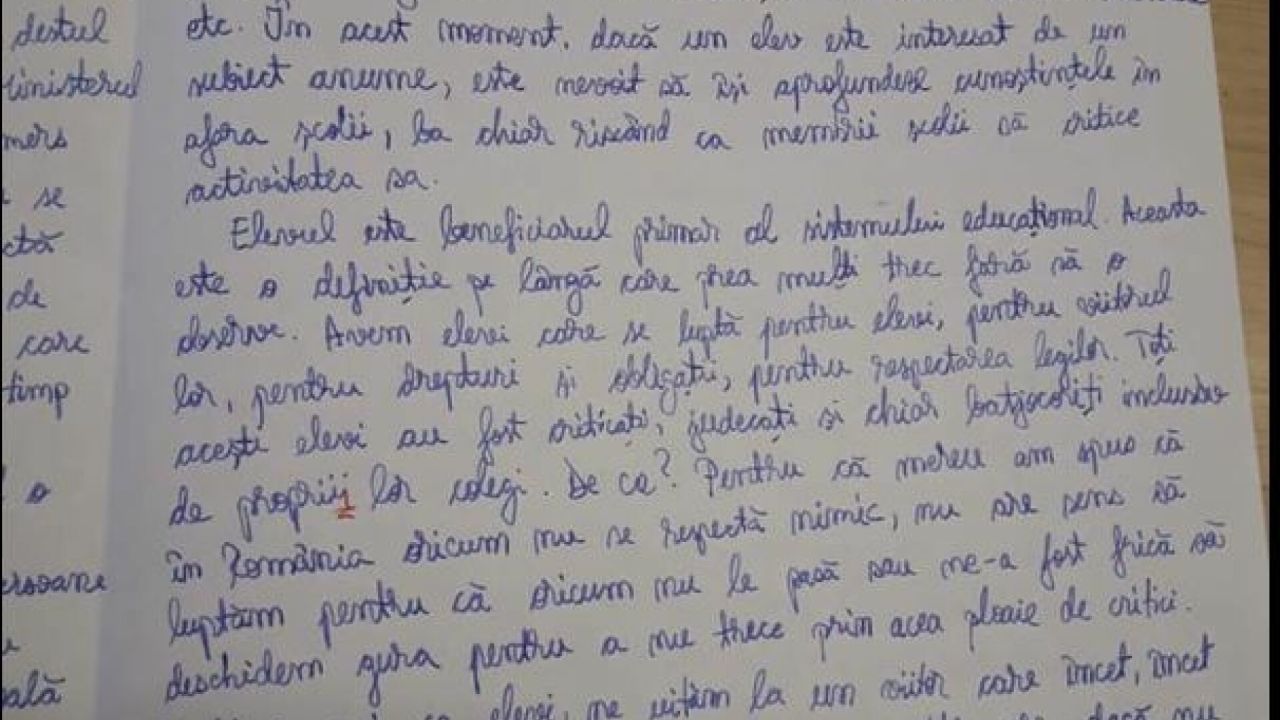 destul
ministerul
mers
se
ctă
de
care
timp
o
ersoane
ală
etc. În acest moment, dacă un elev este interesat de un
subiect anume, este nevoit să își aprofundeze cunoștințele în
afara școlii, ba chiar riscând ca membrii școlii să critice
activitatea sa.
Elevul este beneficiarul primar al sistemului educațional. Aceasta
este o definiție pe lângă care prea mulți trec fără să o
observe. Avem elevi care se luptă pentru elevi, pentru viitorul
lor, pentru drepturi și obligații, pentru respectarea legilor. Toți
acești elevi au fost criticați, judecați si chiar batjocoriți inclusiv
de propriii lor colegi. De ce? Pentru că mereu am spus că
în România oricum nu se respectă nimic, nu are sens să
luptăm pentru că oricum nu le pasă sau ne-a fost frică să
deschidem gura pentru a nu trece prin acea ploaie de critici.
elevi, ne uităm la un viitor care încet, încet
dacă nu